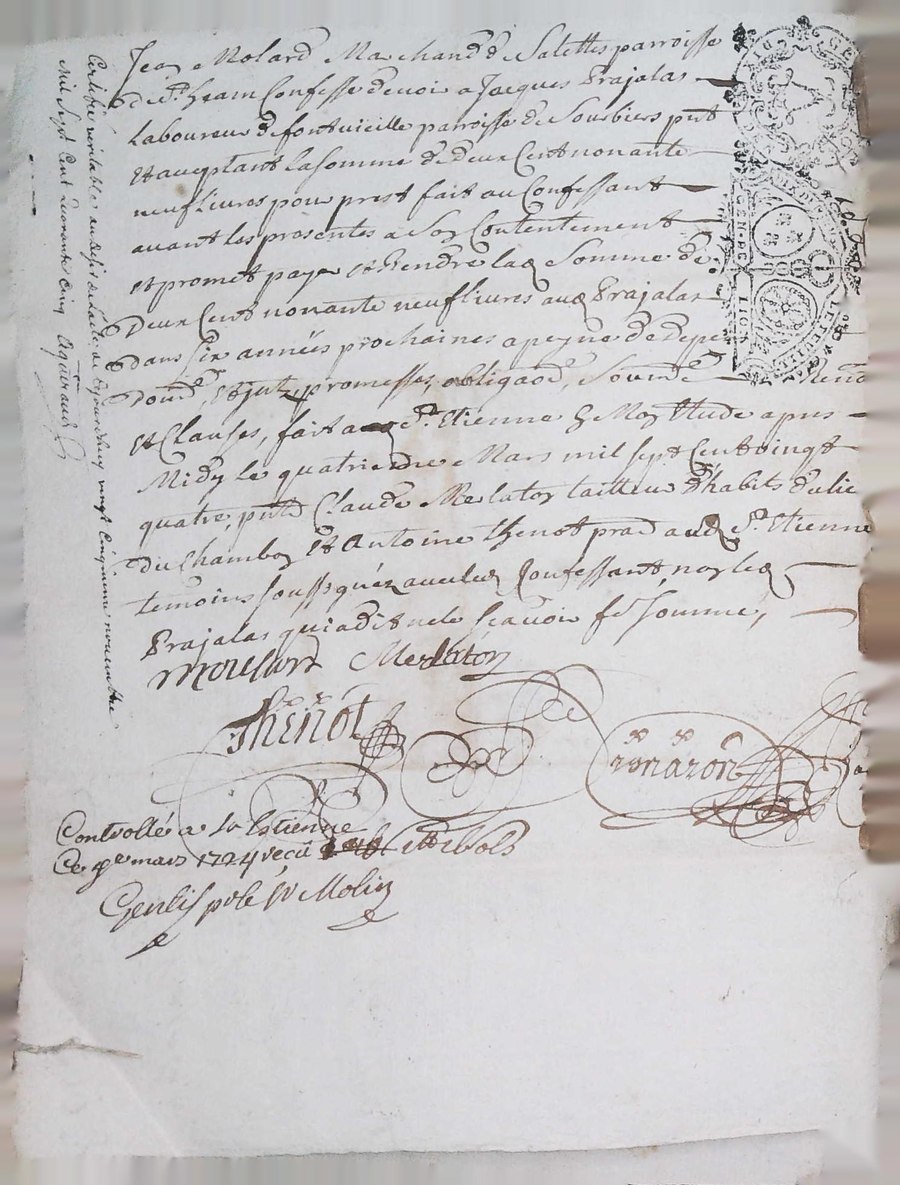 Jean Molard Marchand de Salettes parroisse
de St. Jeam Confesse devoir a Jacques Prajalas
Laboureur de fontvieille parroisse de Sousbiers pnt
et aceptant la somme de deux Cent nonante
neuf livres pour prest fait au Confessant
avant les presentes a Son Contentement
et promet payer et Rendre lad Somme de
Deux Cent nonante neuf livres aud Prajalas
dans Six années prochaines a peyne de depe
promesses, obligaōd,
et Clauses, fait a St. Etienne Mon Etude apres
Midy le quatriesme Mars mil sept Cent vingt
quatre, pnts Claude Merlaton tailleur d'habits du lieu
du Chambon et Antoine Thenot prad aud St. Etienne
temoins soussignéz avec led Confessant, non led
Prajalas qui a dit ne le Scavoir de Sommé,
Mollard Merlaton
Thenot
Controllé a St Estienne
Ce 4e mars 1724 recu
Gentis pr le Sr Molin
Certifié veritable au desir de ce jourdhuy vingt Cinquieme novembre
mil Sept Cent Quarante Cinq